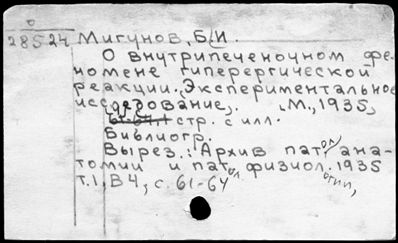 28524 Мигунов, Б.И.
О внутрипеченочном фе-
номене гиперергической
реакции. Экспериментальное
исследование, М., 1935,
61-64 стр. с илл.
Библиогр.
Вырез.: Архив патол. ана-
томии и патол. физиологии, 1935
т.1, В4, с. 61-64